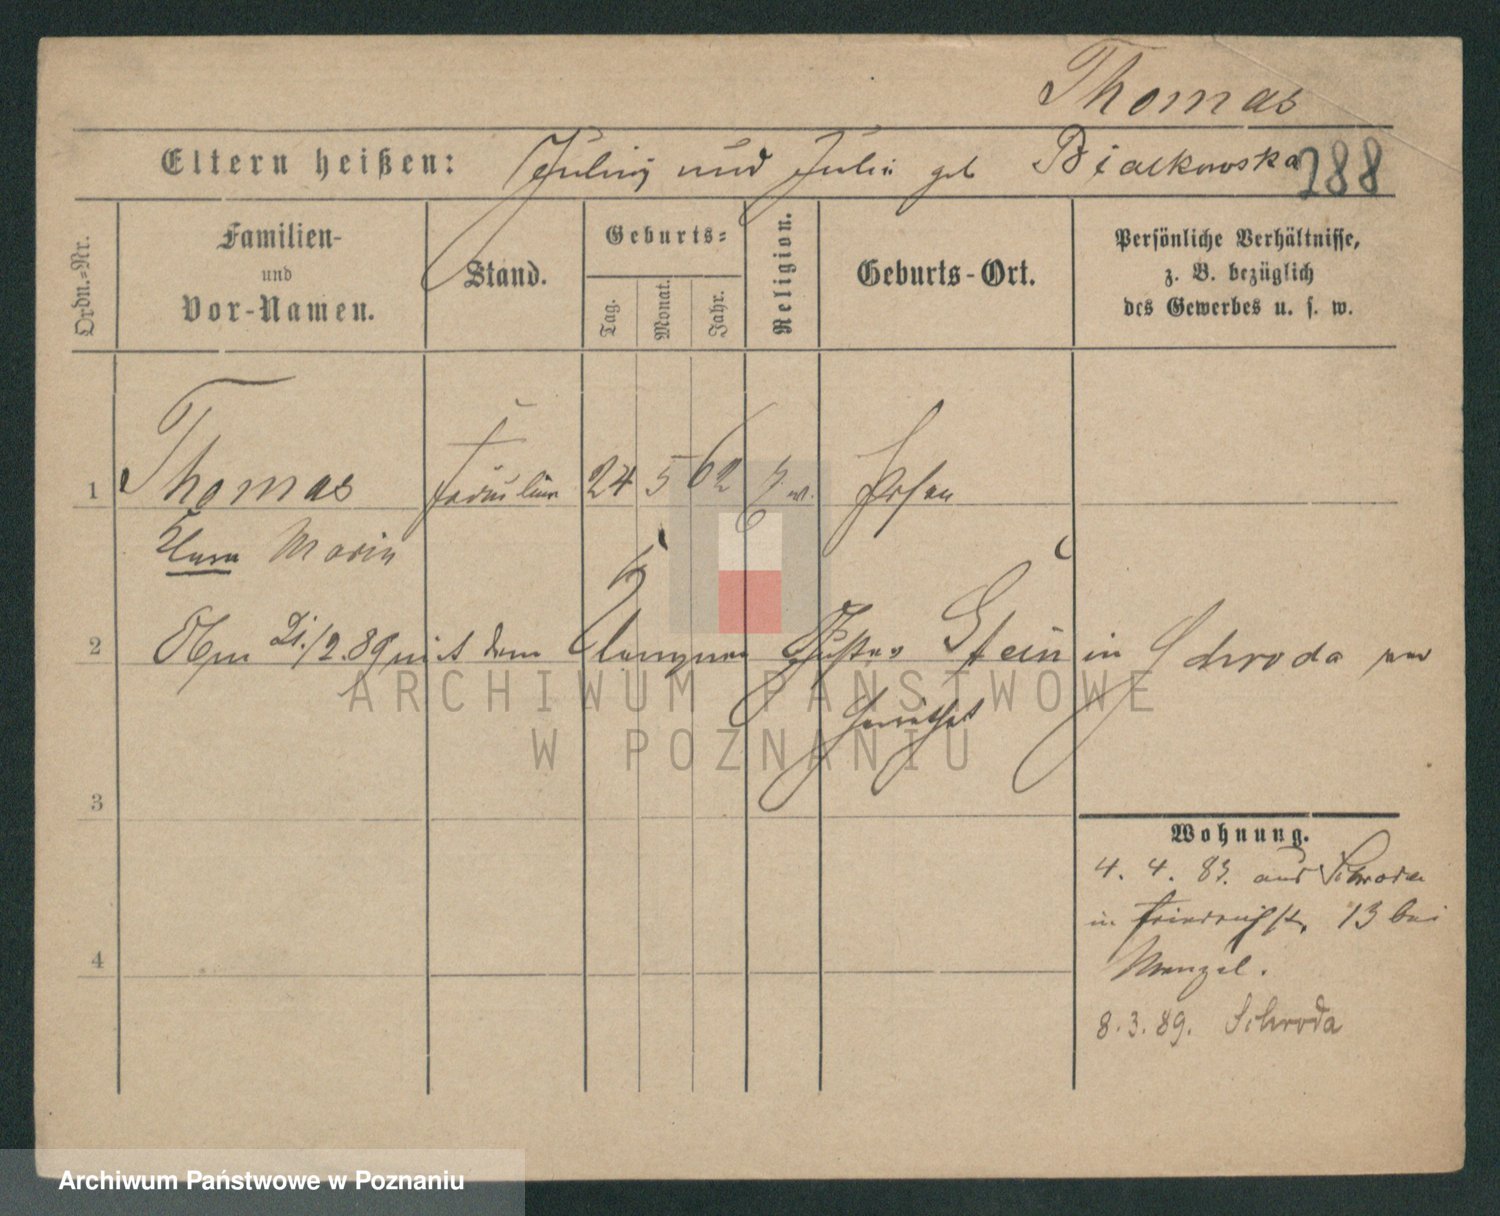 Thomas
Eltern heißen: Julius und Julie geb Bialkowska
288
Ordn.-Nr.
Familien-
und
Vor-Namen.
Stand.
Geburts-
Tag.
Monat.
Jahr.
Religion.
Geburts-Ort.
Persönliche Verhältnisse,
z. B. bezüglich
des Gewerbes u. s. w.
1 Thomas Fräulein 24 5 62 Posen
Clara Maria
2 Am 21./2.89 mit dem Gustav Stein in Schroda
ARCHIWUM PAŃSTWOWE
W POZNANIU
3
Wohnung.
4. 4. 83. aus Schroda
in Friedrichstr. 13 bei
Menzel.
4
8. 3. 89. Schroda
Archiwum Państwowe w Poznaniu